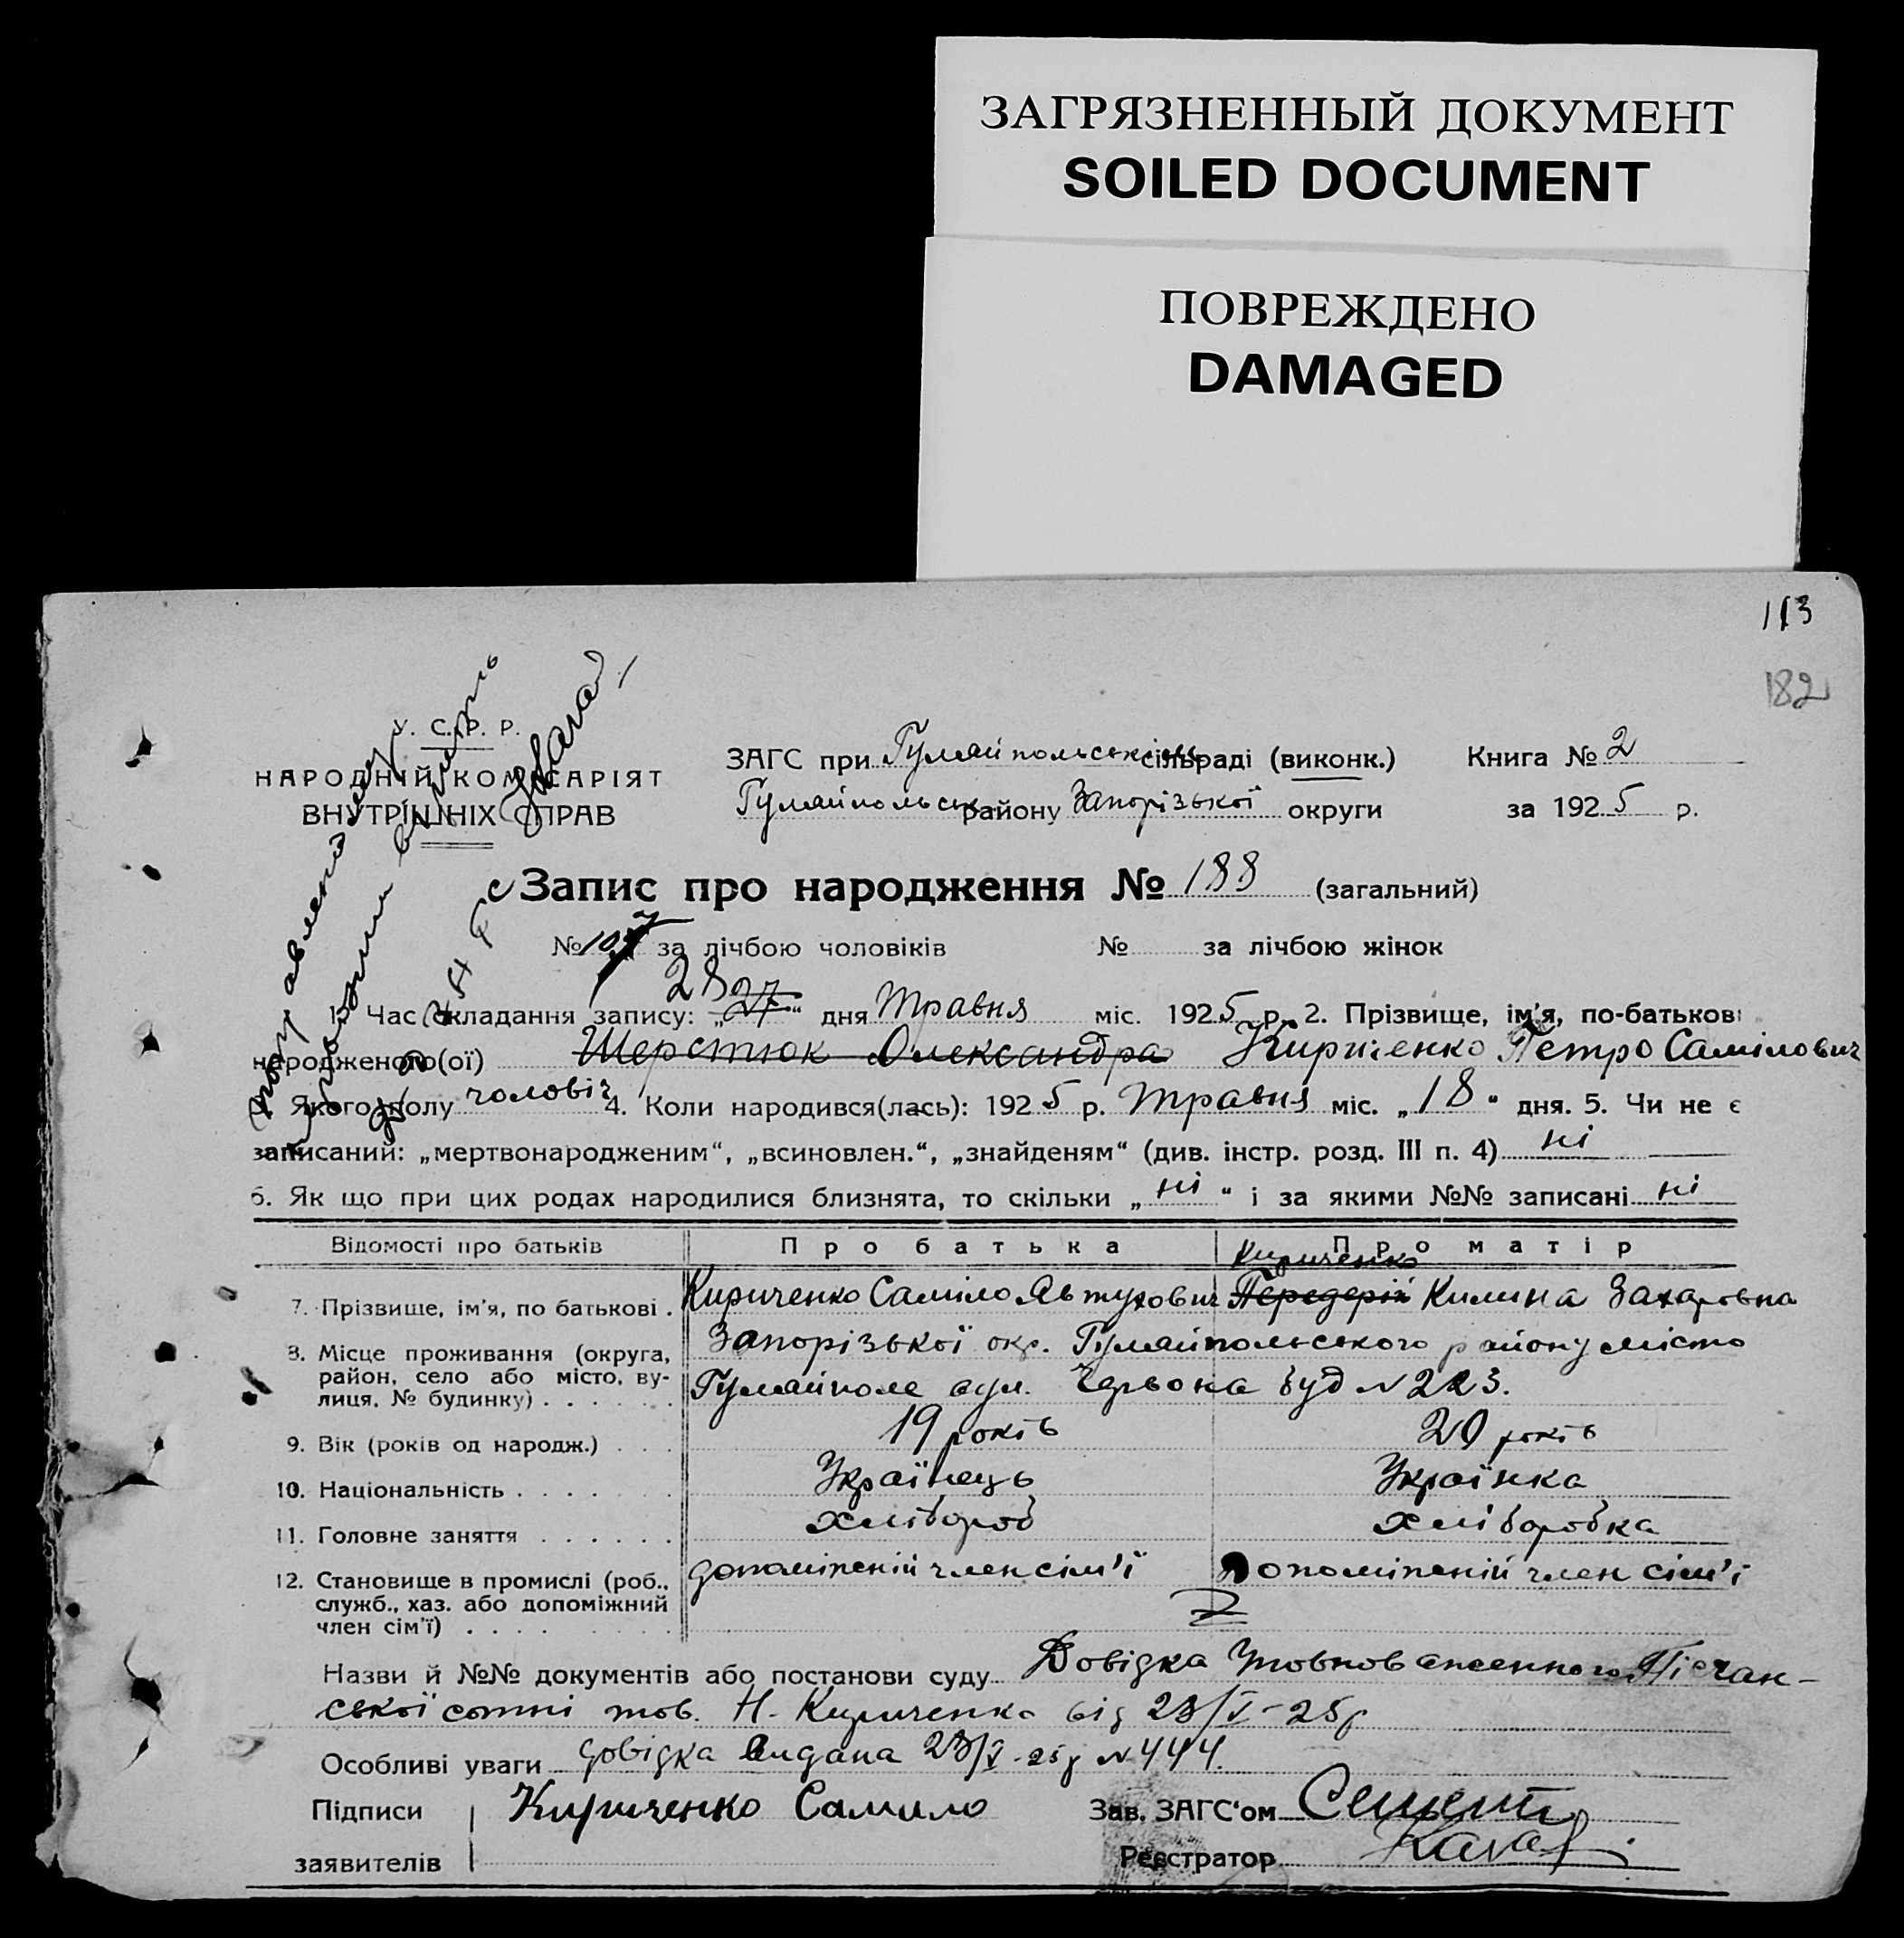 ЗАГРЯЗНЕННЫЙ ДОКУМЕНТ
SOILED DOCUMENT
ПОВРЕЖДЕНО
DAMAGED
113
182
У. С. Р. Р.
НАРОДНІЙ КОМІСАРІЯТ
ВНУТРІШНІХ СПРАВ
ЗАГС при Гуляйпольськім сільраді (виконк.) Книга № 2
Гуляйпольськ району Запорізької округи за 1925 р.
Запис про народження № 188 (загальний)
№ 107 за лічбою чоловіків № за лічбою жінок
1. Час складання запису: „27“ 28 дня Травня міс. 1925 р. 2. Прізвище, ім’я, по-батькові
народженого(ої) Шерстюк Олександра Кириченко Петро Самілович
Якого полу чоловіч 4. Коли народився(лась): 1925 р. Травня міс. „18“ дня. 5. Чи не є
записаний: „мертвонародженим“, „всиновлен.“, „знайденям“ (див. інстр. розд. III п. 4) ні
6. Як що при цих родах народилися близнята, то скільки „ні“ і за якими №№ записані ні
Відомості про батьків Про батька Про матір
Кириченко
7. Прізвище, ім’я, по батькові . Кириченко Саміло Явтухович Передерій Килина Захаровна
8. Місце проживання (округа, район, село або місто, вулиця, № будинку) . . . . . . Запорізької окр. Гуляйпольського району місто
Гуляйполе вул. Червона буд № 223.
9. Вік (років од народж.) . . . 19 років 20 років
10. Національність . . . . . . . Українець Українка
11. Головне заняття . . . . . . хлібороб хліборобка
12. Становище в промислі (роб., служб., хаз. або допоміжний член сім’ї) . . . . допоміжений член сім’ї Допоміжений член сім’ї
Назви й №№ документів або постанови суду Довідка Уповноваженного Пісчан-
ської сотні тов. Н. Кириченко від 23/V-25р
Особливі уваги довідка видана 23/V-25р № 444.
Підписи Кириченко Самило Зав. ЗАГС‘ом
заявителів Реєстратор